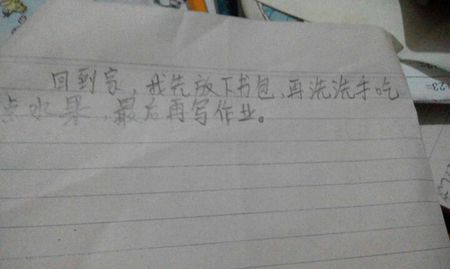 回到家，我先放下书包，再洗洗手吃
点水果，最后再写作业。
23=